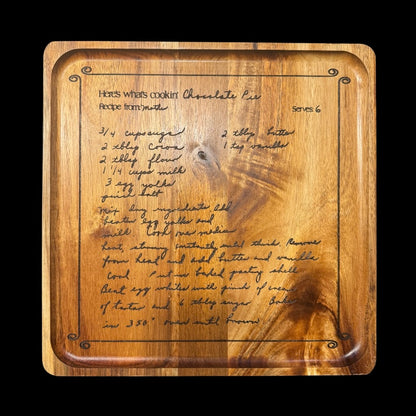 Here's what's cookin' Chocolate Pie
Recipe from: Mother Serves 6
3/4 cup sugar 2 tblsp butter
2 tblsp cocoa 1 tsp vanilla
2 tblsp flour
1 1/4 cups milk
3 egg yolks
pinch salt
Mix dry ingredients. Add
beaten egg yolks and
milk. Cook on medium
heat, stirring constantly until thick. Remove
from heat and add butter and vanilla
Cool. Put in baked pastry shell
Beat egg whites with pinch of cream
of tartar and 6 tblsp sugar. Bake
in 350° oven until brown